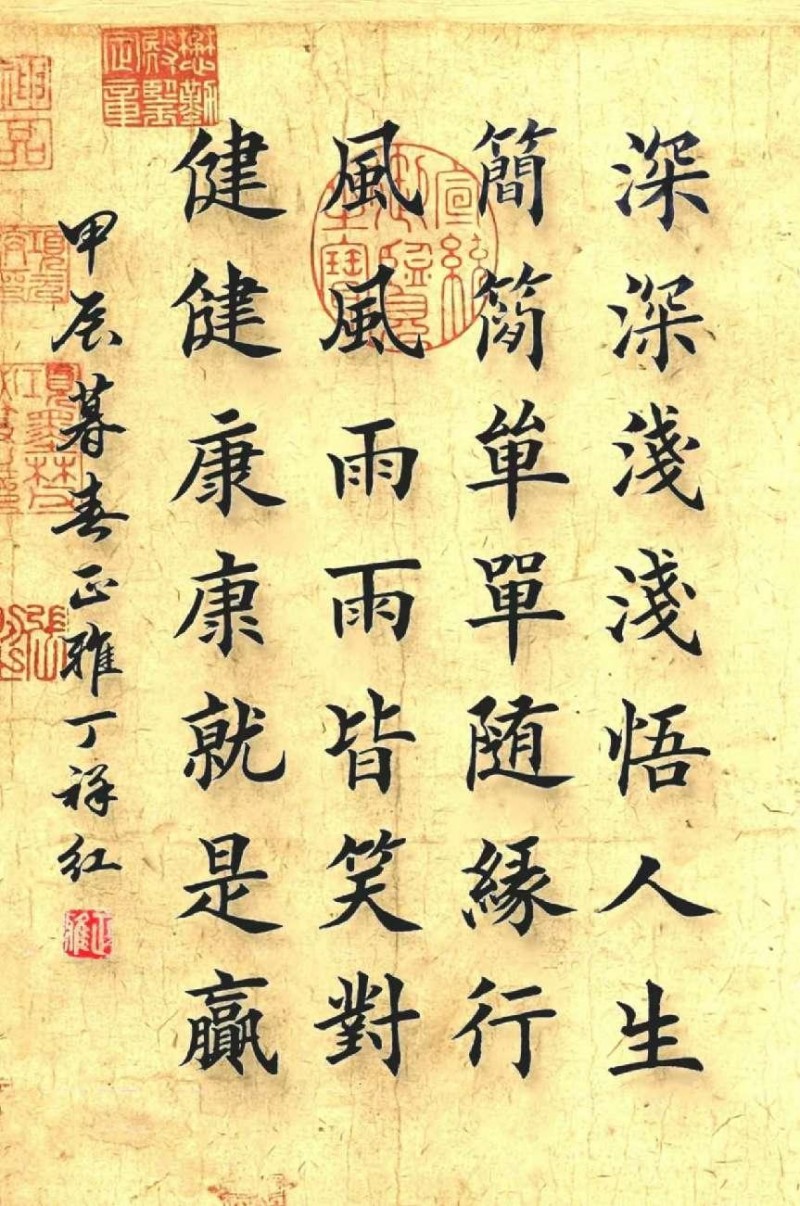 深深淺淺悟人生
簡簡單單隨緣行
風風雨雨皆笑對
健健康康就是贏
甲辰暮春正雅丁祥红
正雅